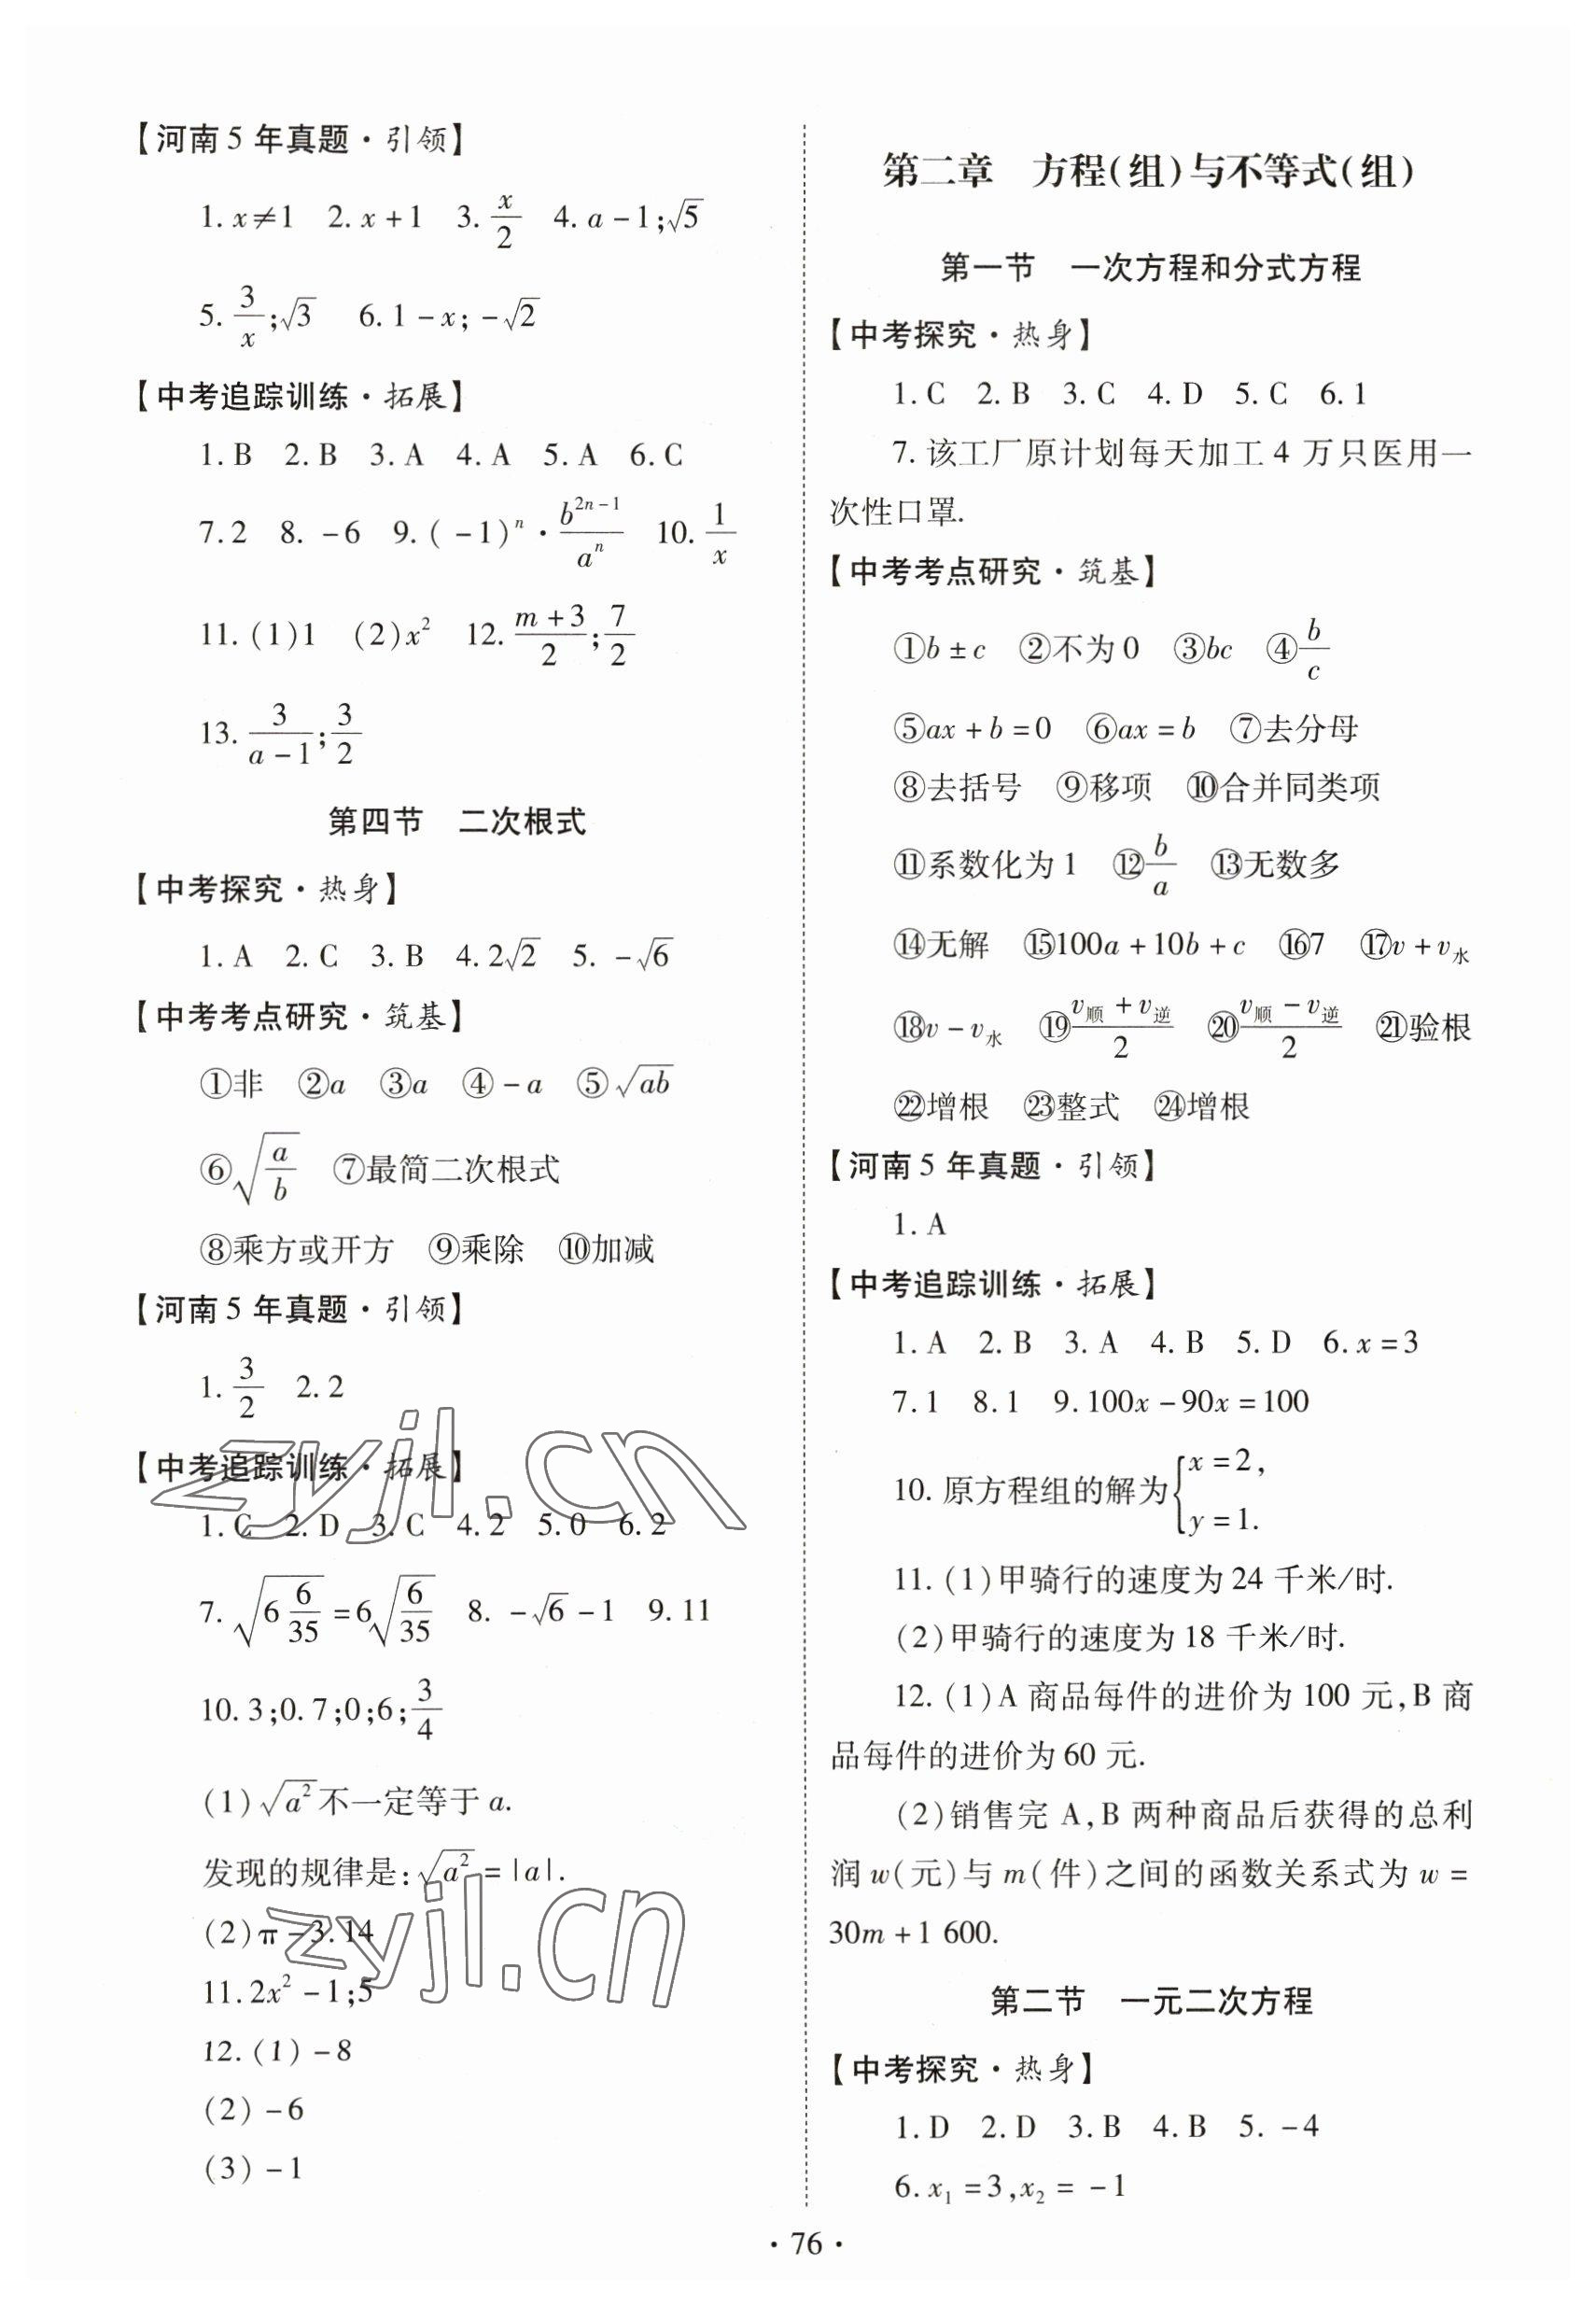 【河南5年真题·引领】
1. x≠1 2. x+1 3. x/2 4. a-1;√5
5. 3/x;√3 6. 1-x; -√2
【中考追踪训练·拓展】
1. B 2. B 3. A 4. A 5. A 6. C
7. 2 8. -6 9. (-1)ⁿ·b²ⁿ⁻¹/aⁿ 10. 1/x
11. (1)1 (2)x² 12. (m+3)/2;7/2
13. 3/(a-1);3/2
第四节 二次根式
【中考探究·热身】
1. A 2. C 3. B 4. 2√2 5. -√6
【中考考点研究·筑基】
①非 ②a ③a ④-a ⑤√(ab)
⑥√(a/b) ⑦最简二次根式
⑧乘方或开方 ⑨乘除 ⑩加减
【河南5年真题·引领】
1. 3/2 2. 2
【中考追踪训练·拓展】
1. C 2. D 3. C 4. 2 5. 0 6. 2
7. √(6 6/35)=6√(6/35) 8. -√6-1 9. 11
10. 3;0.7;0;6;3/4
(1)√(a²)不一定等于a.
发现的规律是:√(a²)=|a|.
(2)π-3.14
11. 2x²-1;5
12. (1)-8
(2)-6
(3)-1
第二章 方程(组)与不等式(组)
第一节 一次方程和分式方程
【中考探究·热身】
1. C 2. B 3. C 4. D 5. C 6. 1
7. 该工厂原计划每天加工4万只医用一
次性口罩.
【中考考点研究·筑基】
①b±c ②不为0 ③bc ④b/c
⑤ax+b=0 ⑥ax=b ⑦去分母
⑧去括号 ⑨移项 ⑩合并同类项
⑪系数化为1 ⑫b/a ⑬无数多
⑭无解 ⑮100a+10b+c ⑯7 ⑰v+v水
⑱v-v水 ⑲(v顺+v逆)/2 ⑳(v顺-v逆)/2 ㉑验根
㉒增根 ㉓整式 ㉔增根
【河南5年真题·引领】
1. A
【中考追踪训练·拓展】
1. A 2. B 3. A 4. B 5. D 6. x=3
7. 1 8. 1 9. 100x-90x=100
10. 原方程组的解为{x=2, y=1.
11. (1)甲骑行的速度为24千米/时.
(2)甲骑行的速度为18千米/时.
12. (1)A商品每件的进价为100元,B商
品每件的进价为60元.
(2)销售完A,B两种商品后获得的总利
润w(元)与m(件)之间的函数关系式为w=
30m+1 600.
第二节 一元二次方程
【中考探究·热身】
1. D 2. D 3. B 4. B 5. -4
6. x₁=3,x₂=-1
·76·
zyjl.cn
zyjl.cn